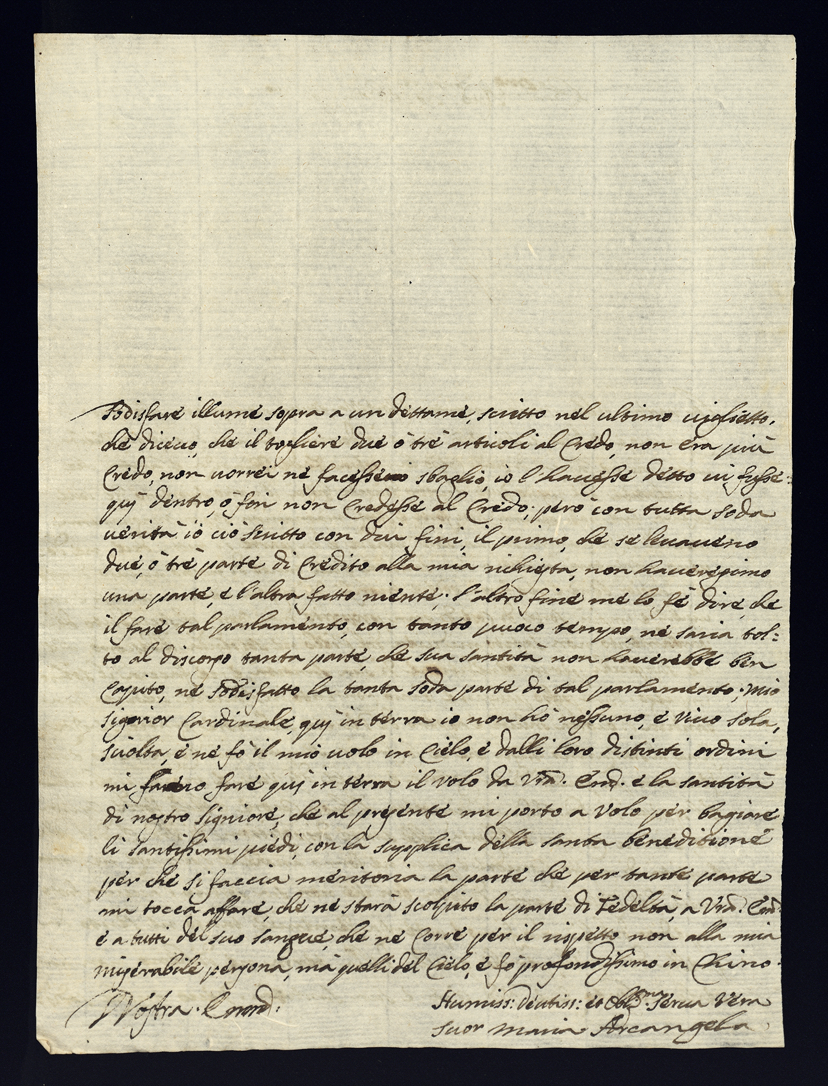 Sodisfare illume sopra a un dettame, scritto nel ultimo viglietto,
che dicevo, che il togliere due ò trè articoli al Credo, non era più
Credo, non vorrei ne facesse sbaglio, io l'havesse detto vi fusse
qui dentro, ò fori non Credesse al Credo; però con tutta soda
verità iò ciò scritto con dui fini, il primo, che se levaveno
due, ò trè parte di Credito alla mia richiesta, non haveressimo
una parte, e l'altra fatto niente. l'altro fine me lo fè dire, che
il fare tal parlamento, con tanto puoco tempo, ne saria tol:
to al discorso tanta parte, che sua santità non haverebbe ben
Capito, ne Sodisfatto la tanta soda parte di tal parlamento; Mio
Signior Cardinale, qui in terra io non hò nessuno, e vivo sola,
sciolta, e ne fò il mio volo in Cielo, e dalli loro distinti ordini
mi fare qui in terra il volo da Vrã. Em̃. e la santità
di nostro Signiore, che al presente mi porto a volo per bagiare
li santissimi piedi, con la supplica della santa beneditione
per che si faccia meritoria la parte che per tante parte
mi tocca affare, che ne starà scolpito la parte di Fedeltà, a Vrã. Em̃.
e a tutti del suo sangue che ne Corre per il rispetto non alla mia
miserabile persona, mà quelli del Cielo, e fò profondissimo in Chino.
Vostra. Emm̃:
Humiss: devtiss: ed Obb.ma Serva Vera
Suor Maria Arcangela